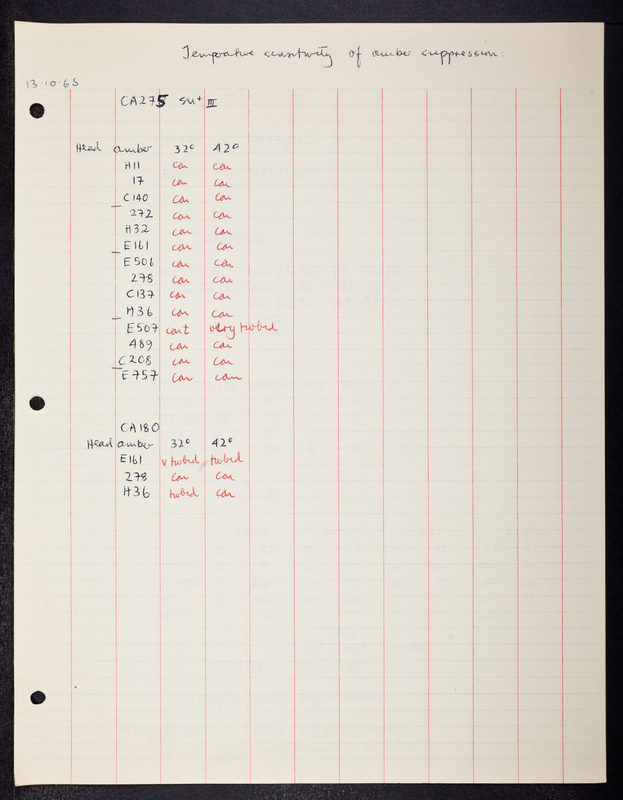 Temperature sensitivity of amber suppression:
13.10.65
CA275 su+ III
Head amber 32° 42°
H11 con con
17 con con
C140 con con
272 con con
H32 con con
E161 con con
E506 con con
278 con con
C137 con con
H36 con con
E507 con t very turbid
489 con con
C208 con con
E757 con con
CA180
Head amber 32° 42°
E161 v turbid turbid
278 con con
H36 turbid con